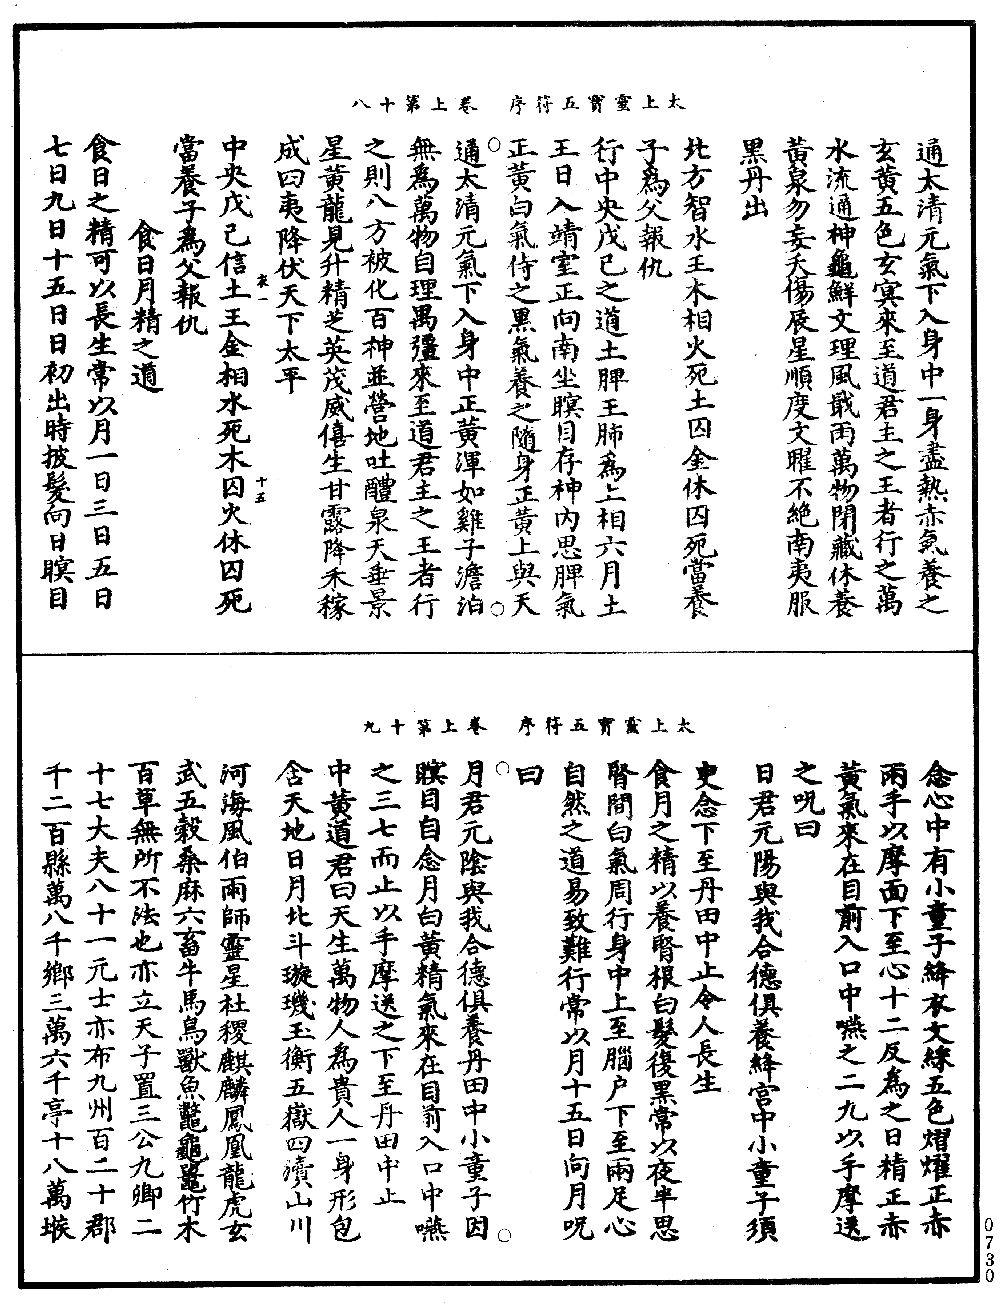 太上靈寶五符序　卷上第十八
通太清元氣下入身中一身盡熱赤氣養之
玄黃五色玄冥來至道君主之王者行之萬
水流通神龜鮮文理風戢雨萬物閉藏休養
黃泉勿妄夭傷辰星順度文曜不絕南夷服
黑丹出
北方智水王木相火死土囚金休囚死當養
子為父報仇
行中央戊己之道土脾王肺為上相六月土
王日入靖室正向南坐瞑目存神內思脾氣
正黃白氣侍之黑氣養之隨身正黃上與天
○通太清元氣下入身中正黃渾如雞子澹泊○
無為萬物自理禺彊來至道君主之王者行
之則八方被化百神並營地吐醴泉天垂景
星黃龍見升精芝英茂威僖生甘露降禾稼
成四夷降伏天下太平
衣一　十五
中央戊己信土王金相水死木囚火休囚死
當養子為父報仇
食日月精之道
食日之精可以長生常以月一日三日五日
七日九日十五日日初出時披髮向日瞑目
太上靈寶五符序　卷上第十九
念心中有小童子絳衣文綵五色熠燿正赤
兩手以摩面下至心十二反為之日精正赤
黃氣來在目前入口中嚥之二九以手摩送
之呪曰
日君元陽與我合德俱養絳宮中小童子須
臾念下至丹田中止令人長生
食月之精以養腎根白髮復黑常以夜半思
腎間白氣周行身中上至腦户下至兩足心
自然之道易致難行常以月十五日向月呪
曰
○月君元陰與我合德俱養丹田中小童子因○
瞑目自念月白黃精氣來在目前入口中嚥
之三七而止以手摩送之下至丹田中止
中黃道君曰天生萬物人為貴人一身形包
含天地日月北斗璇璣玉衡五嶽四瀆山川
河海風伯雨師靈星社稷麒麟鳳凰龍虎玄
武五穀桑麻六畜牛馬鳥獸魚鼈龜鼉竹木
百草無所不法也亦立天子置三公九卿二
十七大夫八十一元士亦布九州百二十郡
千二百縣萬八千鄉三萬六千亭十八萬堠
0730